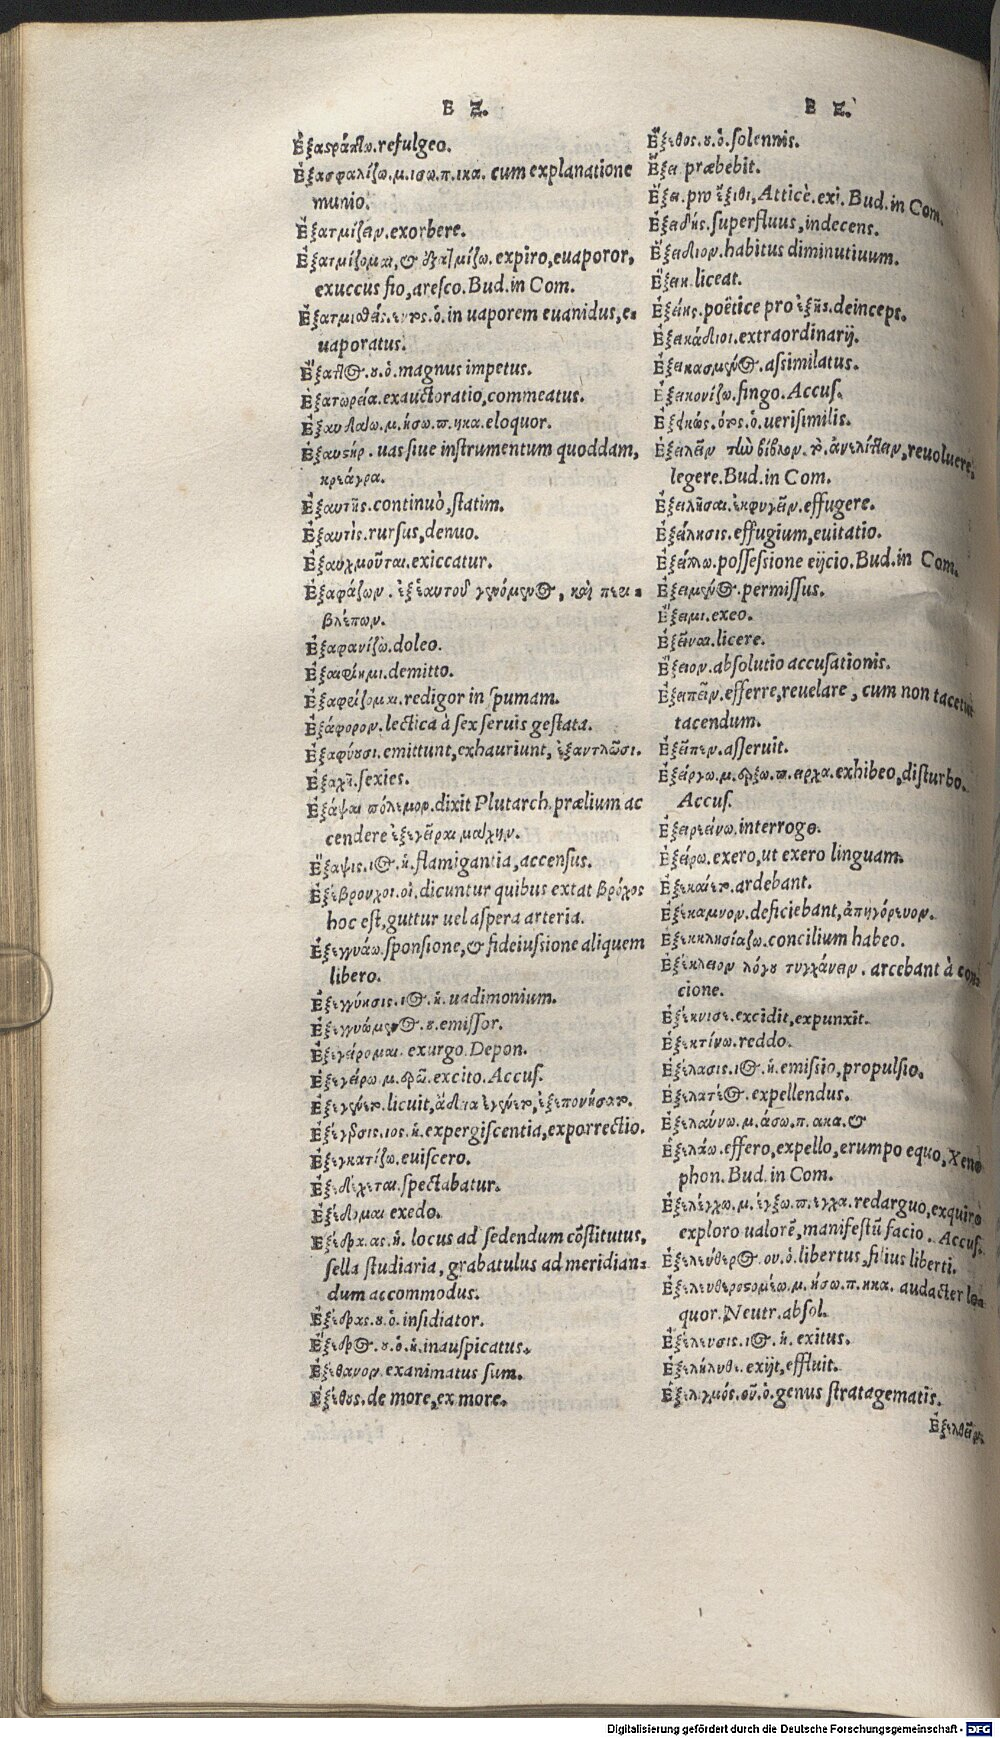 Ε Ξ.
Ἐξαστράπτω. refulgeo.
Ἐξασφαλίζω. μ. ισω. π. ικα. cum explanatione
munio.
Ἐξατμίζειν. exorbere.
Ἐξατμίζομαι, & ἐξατμίζω. expiro, euaporor,
exuccus fio, aresco. Bud. in Com.
Ἐξατμισθείς. εντος. ὁ. in uaporem euanidus, e-
uaporatus.
magnus impetus.
Ἐξατωρεία. exauctoratio, commeatus.
μ. ήσω. π. ηκα. eloquor.
Ἐξαυστήρ. uas siue instrumentum quoddam,
κρεάγρα.
Ἐξαυτῆς. continuò, statim.
Ἐξαυτὶς. rursus, denuo.
Ἐξαυχμοῦται. exiccatur.
Ἐξαφάζων. ἐξ ἑαυτοῦ γενόμενος, καὶ περι-
βλέπων.
Ἐξαφανίζω. doleo.
Ἐξαφίημι. demitto.
Ἐξαφρίζομαι. redigor in spumam.
Ἐξάφορον. lectica à sex seruis gestata.
Ἐξαφύουσι. emittunt, exhauriunt, ἐξαντλῶσι.
Ἐξαχῆ. sexies.
Ἐξάψαι πόλεμον. dixit Plutarch. prælium ac
cendere ἐξεγεῖραι μάχην.
Ἔξαψις. ιος. ἡ. flamigantia, accensus.
Ἐξέβρουχοι. οἱ. dicuntur quibus extat βρόχος
hoc est, guttur uel aspera arteria.
Ἐξεγγυάω. sponsione, & fideiussione aliquem
libero.
Ἐξεγγύησις. ιος. ἡ. uadimonium.
Ἐξεγγυώμενος. ου. emissor.
Ἐξεγείρομαι. exurgo. Depon.
Ἐξεγείρω. μ. ερῶ. excito. Accus.
Ἐξεγένετο. licuit, ἄδεια ἐγένετο, ἐξεπονήσατο.
Ἐξέγερσις. ιος. ἡ. expergiscentia, exporrectio.
Ἐξεγκατίζω. euiscero.
Ἐξεδέχεται. spectabatur.
Ἐξέδομαι exedo.
Ἐξέδρα. ας. ἡ. locus ad sedendum cõstitutus,
sella studiaria, grabatulus ad meridian-
dum accommodus.
Ἐξέδρας. ου. ὁ. insidiator.
Ἐξέδρος. ου. ὁ. ἡ. inauspicatus.
Ἐξέθανον. exanimatus sum.
Ἐξέθους. de more, ex more.
Ε Ξ.
Ἔξεθος. ου. ὁ. solennis.
Ἔξει præbebit.
Ἔξει. pro ἔξιθι, Atticè. exi. Bud. in Com.
Ἐξειδής. superfluus, indecens.
Ἐξείδιον. habitus diminutiuum.
Ἐξείη. liceat.
Ἐξείης. poëtice pro ἑξῆς. deinceps.
Ἐξεικάδιοι. extraordinarij.
Ἐξεικασμένος. assimilatus.
Ἐξεικονίζω. fingo. Accus.
Ἐξεικώς. ότος. ὁ. uerisimilis.
Ἐξειλεῖν τὼ βίβλον. τὸ. ἀνελίττειν, reuoluere,
legere. Bud. in Com.
Ἐξειλῆσαι. ἐκφυγεῖν. effugere.
Ἐξείλησις. effugium, euitatio.
Ἐξείλλω. possessione eijcio. Bud. in Com.
Ἐξειμένος. permissus.
Ἔξειμι. exeo.
Ἐξεῖναι. licere.
Ἔξειον. absolutio accusationis.
Ἐξειπεῖν. efferre, reuelare, cum non tacetur
tacendum.
Ἐξεῖπεν. asseruit.
Ἐξείργω. μ. ερξω. π. ειρχα. exhibeo, disturbo.
Accus.
Ἐξειρεείνω. interrogo.
Ἐξείρω. exero, ut exero linguam.
Ἐξεκαίετο. ardebant.
Ἐξέκαμνον. deficiebant, ἀπηγόρευον.
Ἐξεκκλησίαζω. concilium habeo.
Ἐξέκλειον λόγου τυγχάνειν. arcebant à con-
cione.
Ἐξέκνισε. excidit, expunxit.
Ἐξεκτίνω. reddo.
Ἐξέλασις. ιος. ἡ. emissio, propulsio.
Ἐξελατέος. expellendus.
Ἐξελαύνω. μ. άσω. π. ακα. &
Ἐξελάω. effero, expello, erumpo equo, Xeno
phon. Bud. in Com.
Ἐξελέγχω. μ. έγξω. π. εγχα. redarguo, exquiro
exploro ualorẽ, manifestũ facio. Accus.
Ἐξελεύθερος. ου. ὁ. libertus, filius liberti.
Ἐξελευθεροστομέω. μ. ήσω. π. ηκα. audacter lo-
quor. Neutr. absol.
Ἐξέλευσις. ιος. ἡ. exitus.
Ἐξελήλυθε. exijt, effluit.
Ἐξελιγμός. οῦ. ὁ. genus stratagematis.
Ἐξελθεῖν.
Digitalisierung gefördert durch die Deutsche Forschungsgemeinschaft - DFG